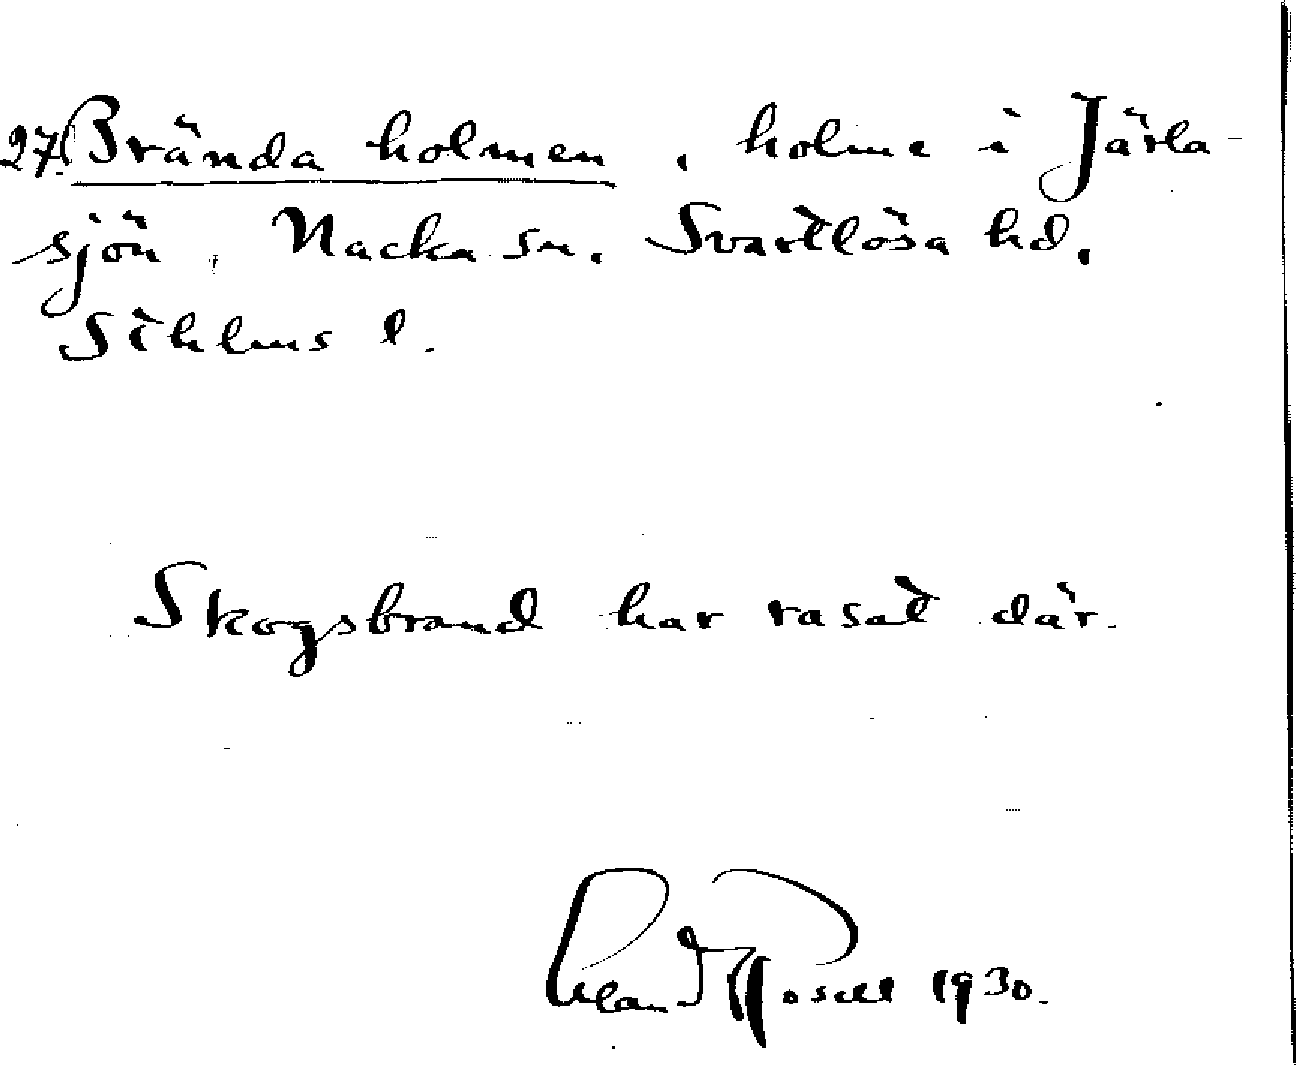 27. Brända holmen, holme i Järla-
sjön, Nacka sn. Svartlösa hd.
Sthlms l.
Skogsbrand har rasat där.
1930.